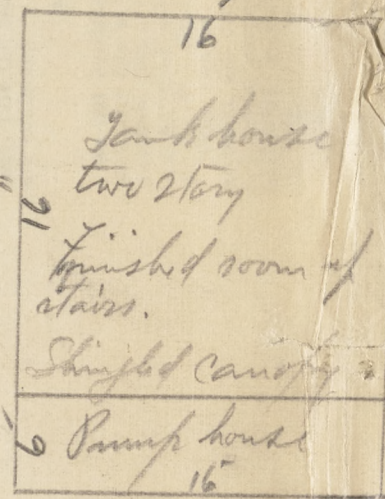 16
Tank house
two story
Finished room up
stairs.
Shingled canopy
Pump house
16